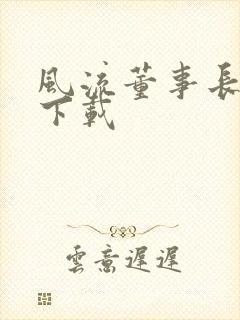 風流董事長
下載
雲意遲遲